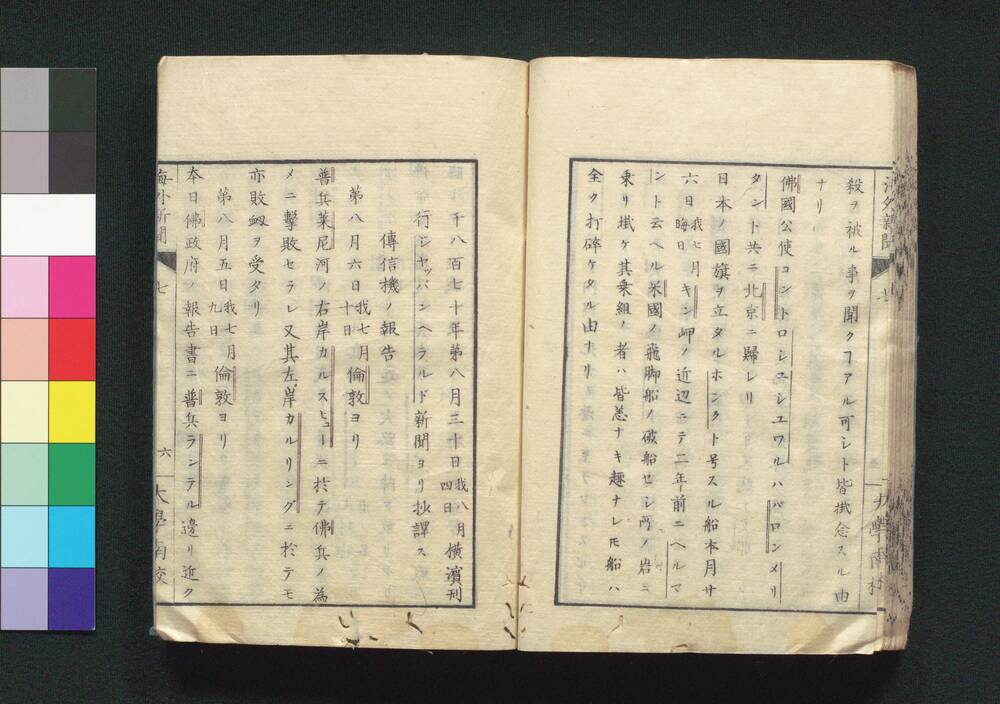 殺ヲ被ル事ヲ聞クヿアル可シト皆掛念スル由
ナリ
佛國公使コントロシユシユワルハバロンメリ
タント共ニ北京ニ歸レリ
日本ノ國旗ヲ立タルホンクト号スル船本月サ
六日我七月晦日キン岬ノ近辺ニテ二年前ニヘルマ
ント云ヘル米國ノ飛脚船ノ破船セシ所ノ岩ニ
乗リ掛ケ其乗組ノ者ハ皆恙ナキ趣ナレ𪜈船ハ
全ク打碎ケタル由ナリ
千八百七十年第八月三十日我八月四日横濱刊
行ジヤッパンヘラルド新聞ヨリ抄譯ス
傳信機ノ報告
第八月六日我七月十日倫敦ヨリ
普兵莱尼河ノ右岸カルルスヒューニ於テ佛兵ノ為
メニ擊敗セラレ又其左岸カルリングニ於テモ
亦敗衂ヲ受タリ
第八月五日我七月九日倫敦ヨリ
本日佛政府ノ報告書ニ普兵ランデル邊リ近ク
海外新聞
七
六
大學南校